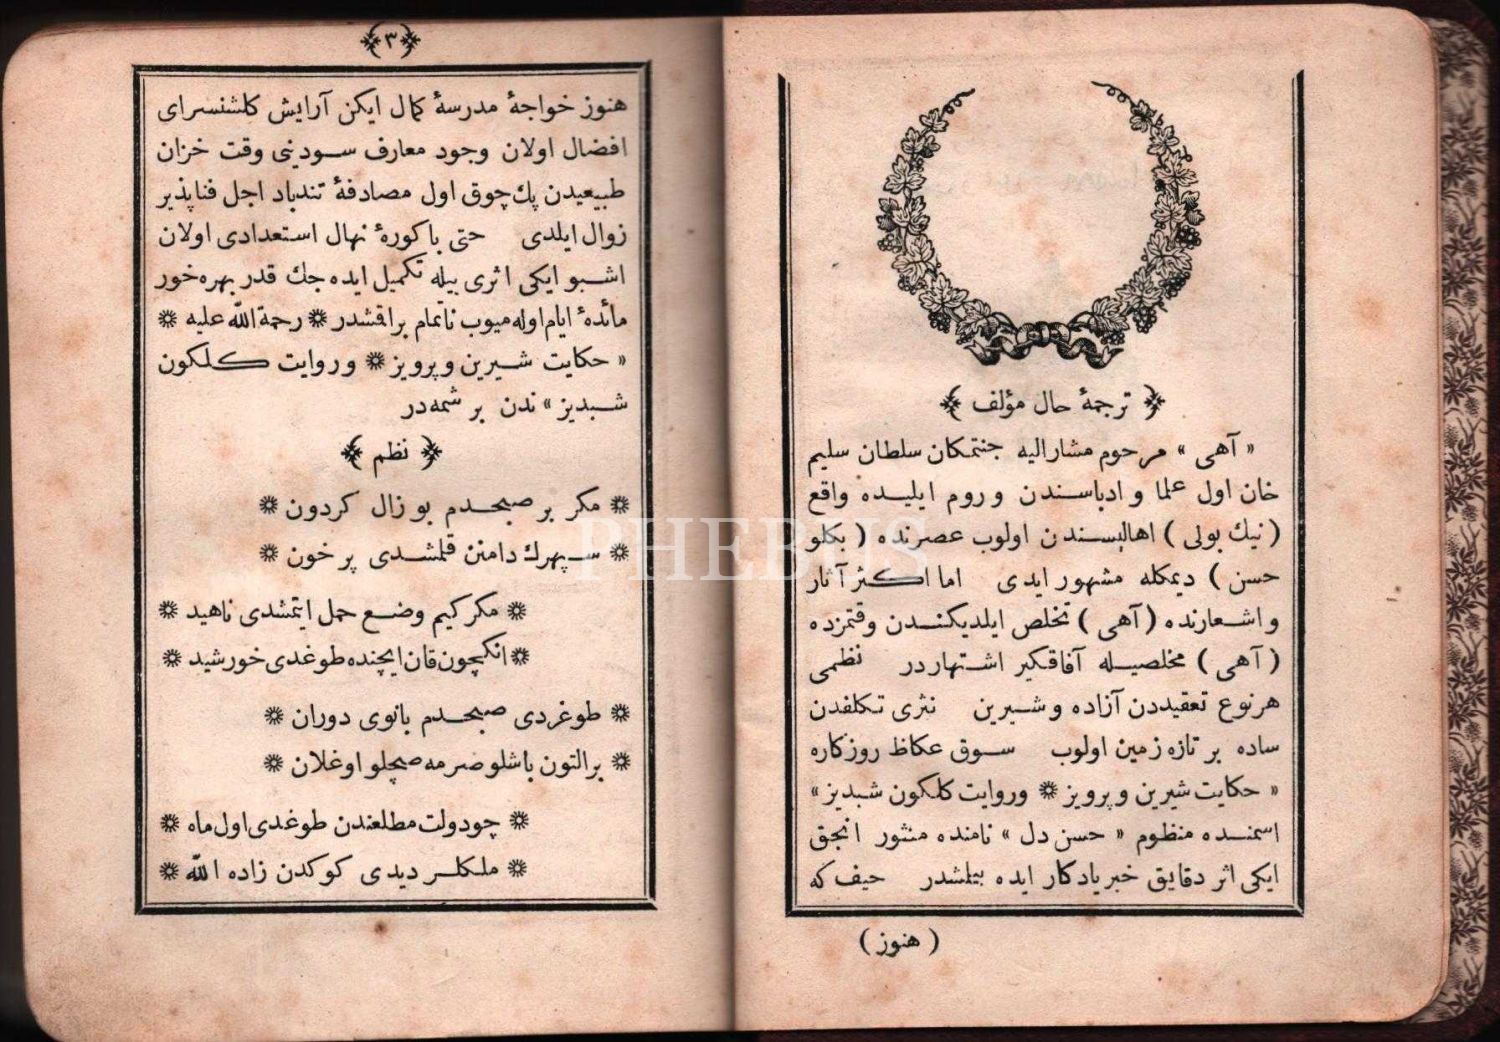 ترجمۀ حال مؤلف
« آهی » مرحوم مشارالیه جنتمکان سلطان سلیم
خان اول علما و ادباسندن و روم ایلیده واقع
( نیك بولی ) اهالیسندن اولوب عصرنده ( بکلو
حسن ) دیمکله مشهور ایدی اما اکثر آثار
و اشعارنده ( آهی ) تخلص ایلدیکندن وقتمزده
( آهی ) مخلصیله آفاقکیر اشتهاردر نظمی
هرنوع تعقیددن آزاده و شیرین نثری تکلفدن
ساده بر تازه زمین اولوب سوق عکاظ روزکاره
« حکایت شیرین و پرویز ❊ و روایت کلکون شبدیز »
اسمنده منظوم « حسن دل » نامنده منثور انجق
ایکی اثر دقایق خبر یادکار ایده بیلشدر حیف که
( هنوز )
٣
هنوز خواجۀ مدرسۀ کمال ایکن آرایش کلشنسرای
افضال اولان وجود معارف سودینی وقت خزان
طبیعیدن پك چوق اول مصادفۀ تندباد اجل فناپذیر
زوال ایلدی حتی باکورۀ نهال استعدادی اولان
اشبو ایکی اثری بیله تکمیل ایده جك قدر بهره خور
مائدۀ ایام اوله میوب ناتمام براقمشدر ❊ رحمة الله علیه ❊
« حکایت شیرین و پرویز ❊ و روایت کلکون
شبدیز » ندن بر شمه در
نظم
❊ مکر بر صبحدم بو زال کردون ❊
❊ سپهرك دامنن قلمشدی پر خون ❊
❊ مکر کیم وضع حمل ایتمشدی ناهید ❊
❊ انکیچون قان ایچنده طوغدی خورشید ❊
❊ طوغردی صبحدم بانوی دوران ❊
❊ بر التون باشلو صرمه صچلو اوغلان ❊
❊ چو دولت مطلعندن طوغدی اول ماه ❊
❊ ملکلر دیدی کوکدن زاده الله ❊
PHEBUS